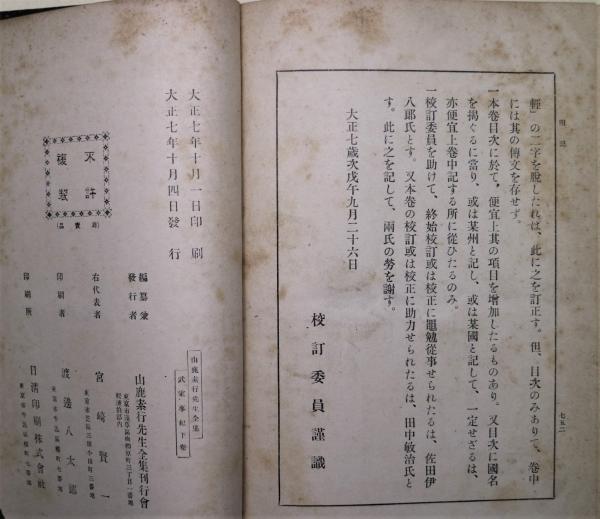 輕」の二字を脫したれば、此に之を訂正す。但、目次のみありて、卷中
には其の傳文を存せず。
一本卷目次に於て、便宜上其の項目を增加したるものあり。又目次に國名
を揭ぐるに當り、或は某州と記し、或は某國と記して、一定せざるは、
亦便宜上卷中記する所に從ひたるのみ。
一校訂委員を助けて、終始校訂或は校正に黽勉從事せられたるは、佐田伊
八郎氏とす。又本卷の校訂或は校正に助力せられたるは、田中敏治氏と
す。此に之を記して、兩氏の勞を謝す。
大正七歲次戊午九月二十六日
校訂委員謹識
七五二
大正七年十月一日印刷
大正七年十月四日發行
不許
複製
山鹿素行先生全集
武家事紀下卷
編纂兼
發行者
山鹿素行先生全集刊行會
右代表者
宮崎賢一
印刷者
渡邊八太郎
印刷所
日淸印刷株式會社